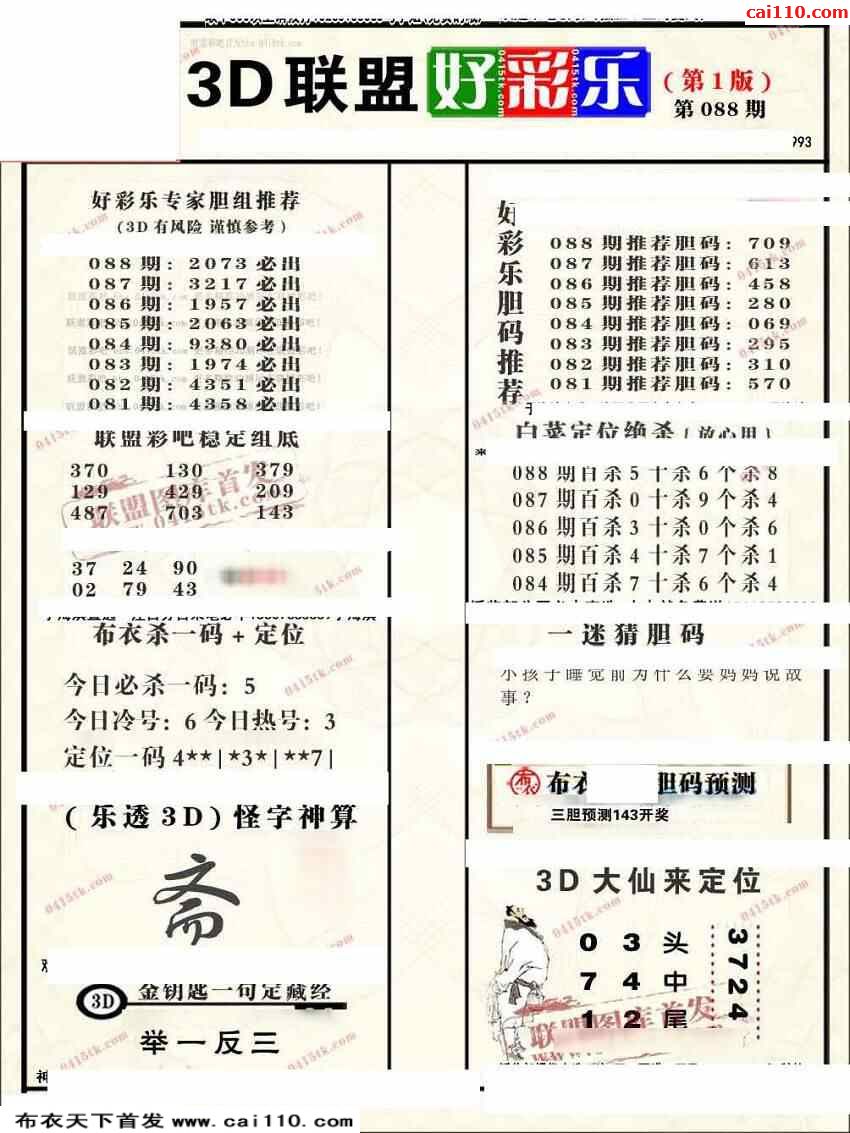 cai110.com
3D联盟好彩乐
(第1版)
第088期
0415tk.com 0415tk.com 0415tk.com
993
好彩乐专家胆组推荐
(3D有风险 谨慎参考)
088期: 2073必出
087期: 3217必出
086期: 1957必出
085期: 2063必出
084期: 9380必出
083期: 1974必出
082期: 4351必出
081期: 4358必出
联盟彩吧稳定组底
370 130 379
129 429 209
487 703 143
联盟图库首发
www.0415tk.com
37 24 90
02 79 43
布衣杀一码+定位
今日必杀一码: 5
今日冷号: 6 今日热号: 3
定位一码 4**|*3*|**7|
(乐透3D)怪字神算
斋
3D 金钥匙一句定藏经
举一反三
好彩乐胆码推荐
088期推荐胆码: 709
087期推荐胆码: 613
086期推荐胆码: 458
085期推荐胆码: 280
084期推荐胆码: 069
083期推荐胆码: 295
082期推荐胆码: 310
081期推荐胆码: 570
白菜定位绝杀(放心用)
088期百杀5十杀6个杀8
087期百杀0十杀9个杀4
086期百杀3十杀0个杀6
085期百杀4十杀7个杀1
084期百杀7十杀6个杀4
一迷猜胆码
小孩子睡觉前为什么要妈妈说故
事?
布衣
胆码预测
三胆预测143开奖
3D大仙来定位
0 3 头
7 4 中
1 2 尾
3724
联盟图库首发
布衣天下首发 www.cai110.com